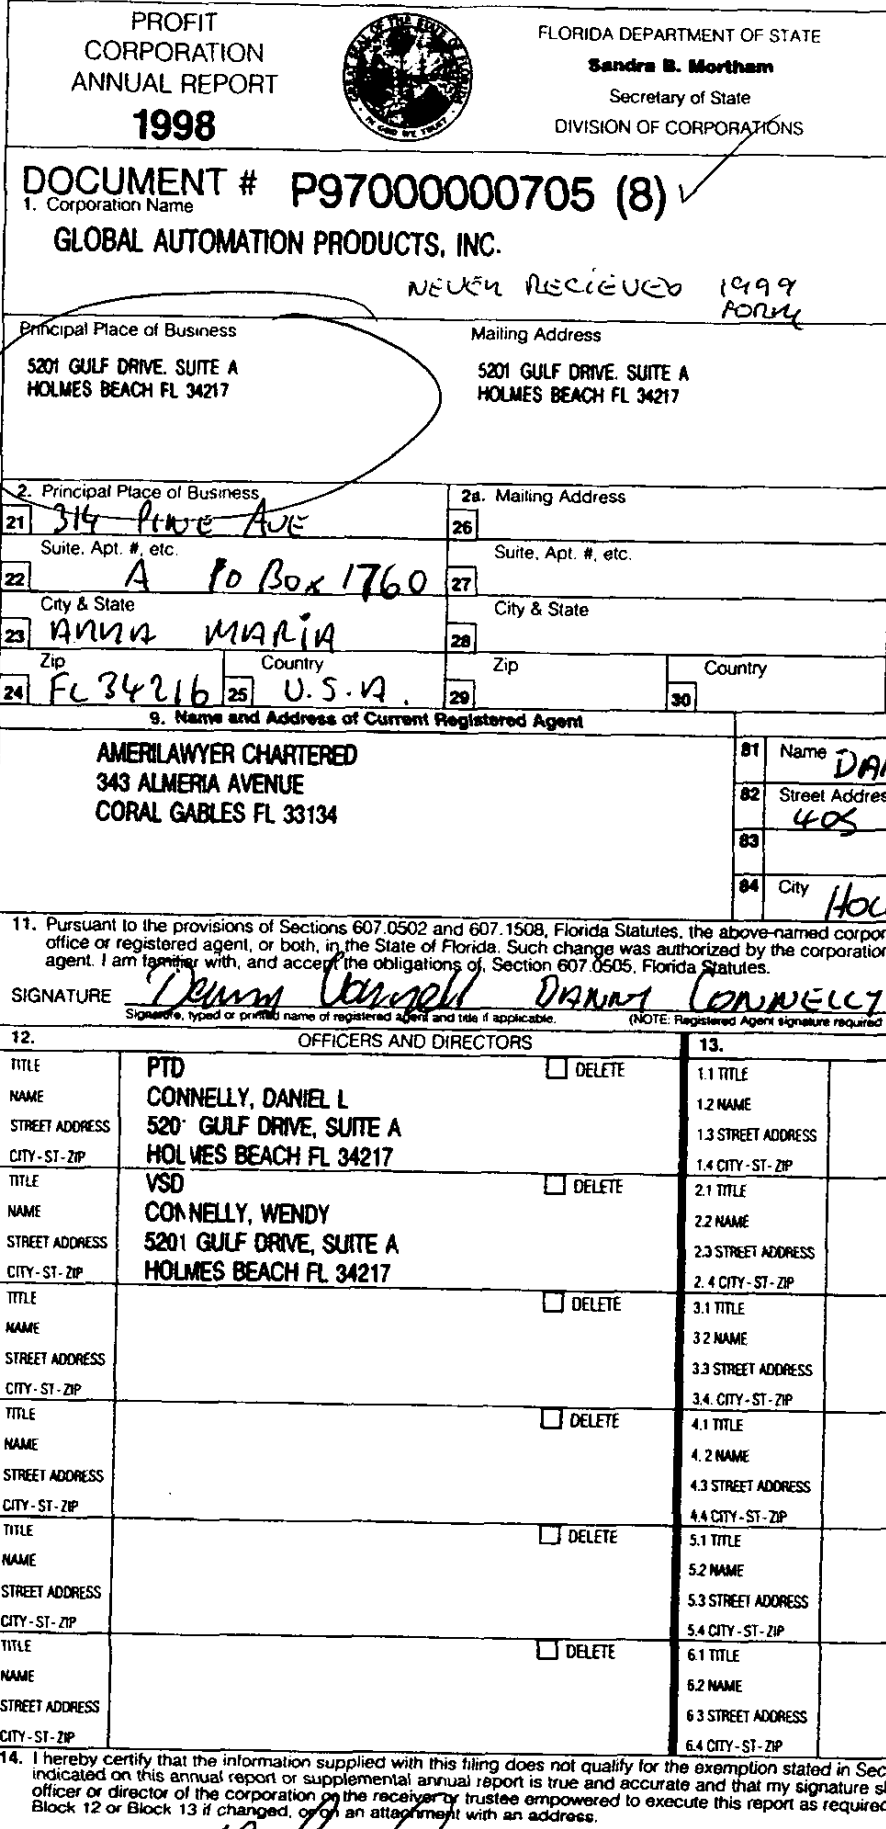 PROFIT
CORPORATION
ANNUAL REPORT
1998
GREAT SEAL OF THE STATE OF FLORIDA
IN GOD WE TRUST
FLORIDA DEPARTMENT OF STATE
Sandra B. Mortham
Secretary of State
DIVISION OF CORPORATIONS
DOCUMENT # P97000000705 (8)
1. Corporation Name
GLOBAL AUTOMATION PRODUCTS, INC.
NEVER RECIEVED 1999
FORM
Principal Place of Business
5201 GULF DRIVE. SUITE A
HOLMES BEACH FL 34217
Mailing Address
5201 GULF DRIVE. SUITE A
HOLMES BEACH FL 34217
2. Principal Place of Business
21 314 PINE AVE
Suite, Apt. #, etc.
22 A PO BOX 1760
City & State
23 ANNA MARIA
Zip Country
24 FL 34216 25 U.S.A.
2a. Mailing Address
26
Suite, Apt. #, etc.
27
City & State
28
Zip Country
29 30
9. Name and Address of Current Registered Agent
AMERILAWYER CHARTERED
343 ALMERIA AVENUE
CORAL GABLES FL 33134
81 Name DAN
82 Street Addres
405
83
84 City HOL
11. Pursuant to the provisions of Sections 607.0502 and 607.1508, Florida Statutes, the above-named corpor
office or registered agent, or both, in the State of Florida. Such change was authorized by the corporation
agent. I am familiar with, and accept the obligations of, Section 607.0505, Florida Statutes.
SIGNATURE Danny Connelly DANNY CONNELLY
Signature, typed or printed name of registered agent and title if applicable. (NOTE: Registered Agent signature required
12. OFFICERS AND DIRECTORS 13.
TITLE PTD DELETE 1.1 TITLE
NAME CONNELLY, DANIEL L 1.2 NAME
STREET ADDRESS 520' GULF DRIVE, SUITE A 1.3 STREET ADDRESS
CITY-ST-ZIP HOLMES BEACH FL 34217 1.4 CITY-ST-ZIP
TITLE VSD DELETE 2.1 TITLE
NAME CONNELLY, WENDY 2.2 NAME
STREET ADDRESS 5201 GULF DRIVE, SUITE A 2.3 STREET ADDRESS
CITY-ST-ZIP HOLMES BEACH FL 34217 2.4 CITY-ST-ZIP
TITLE DELETE 3.1 TITLE
NAME 3.2 NAME
STREET ADDRESS 3.3 STREET ADDRESS
CITY-ST-ZIP 3.4. CITY-ST-ZIP
TITLE DELETE 4.1 TITLE
NAME 4.2 NAME
STREET ADDRESS 4.3 STREET ADDRESS
CITY-ST-ZIP 4.4 CITY-ST-ZIP
TITLE DELETE 5.1 TITLE
NAME 5.2 NAME
STREET ADDRESS 5.3 STREET ADDRESS
CITY-ST-ZIP 5.4 CITY-ST-ZIP
TITLE DELETE 6.1 TITLE
NAME 6.2 NAME
STREET ADDRESS 6.3 STREET ADDRESS
CITY-ST-ZIP 6.4 CITY-ST-ZIP
14. I hereby certify that the information supplied with this filing does not qualify for the exemption stated in Sec
indicated on this annual report or supplemental annual report is true and accurate and that my signature s
officer or director of the corporation or the receiver or trustee empowered to execute this report as required
Block 12 or Block 13 if changed, or on an attachment with an address.